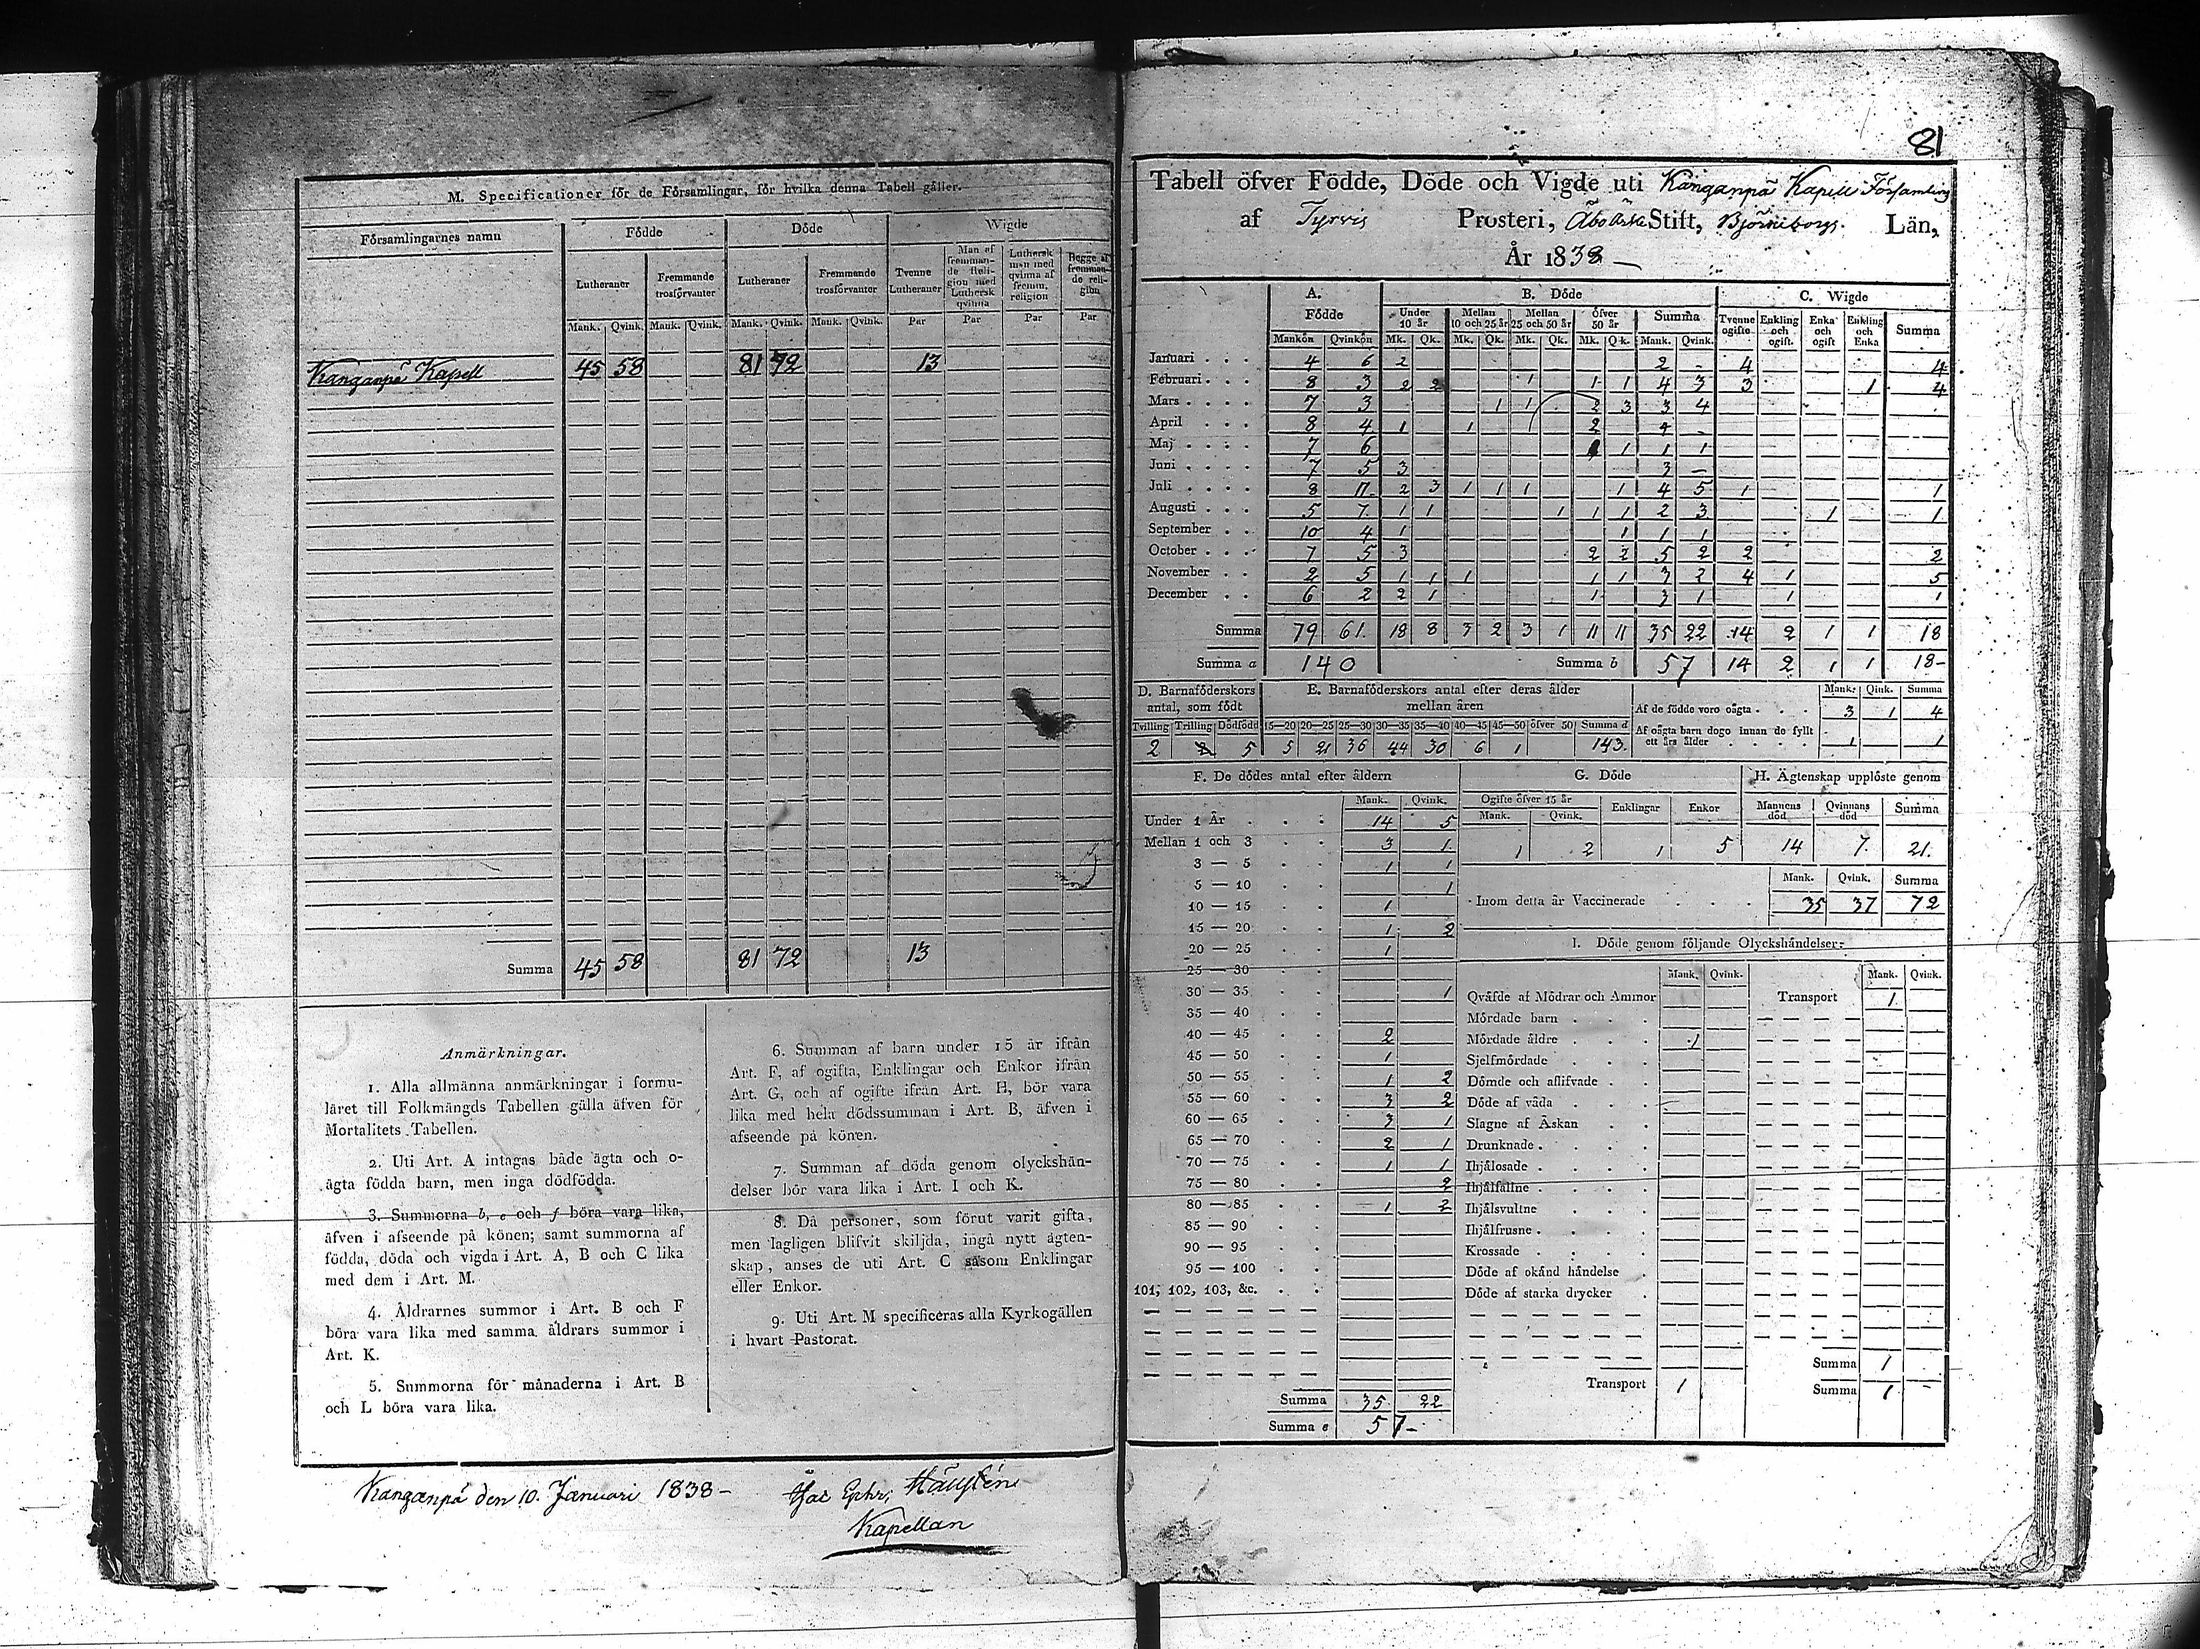 M. Specificationer för de Församlingar, för hvilka denna Tabell gäller.
Församlingarnes namn Födde Döde Wigde
Lutheraner Fremmande trosförvanter Lutheraner Fremmande trosförvanter Tvenne Lutheraner Man af fremmande Religion med Luthersk qvinna Luthersk man med qvinna af fremm. religion Begge af fremmande religion
Mank. Qvink. Mank. Qvink. Mank. Qvink. Mank. Qvink. Par Par Par Par
Kanganpä Kapell 45 58 81 72 13
Summa 45 58 81 72 13
Anmärkningar.
1. Alla allmänna anmärkningar i formu-
läret till Folkmängds Tabellen gälla äfven för
Mortalitets Tabellen.
2. Uti Art. A intagas både ägta och o-
ägta födda barn, men inga dödfödda.
3. Summorna b, e och f böra vara lika,
äfven i afseende på könen; samt summorna af
födda, döda och vigda i Art. A, B och C lika
med dem i Art. M.
4. Åldrarnes summor i Art. B och F
böra vara lika med samma åldrars summor i
Art. K.
5. Summorna för månaderna i Art. B
och L böra vara lika.
6. Summan af barn under 15 år ifrån
Art. F, af ogifta, Enklingar och Enkor ifrån
Art. G, och af ogifte ifrån Art. H, bör vara
lika med hela dödssumman i Art. B, äfven i
afseende på könen.
7. Summan af döda genom olyckshän-
delser bör vara lika i Art. I och K.
8. Då personer, som förut varit gifta,
men lagligen blifvit skiljda, ingå nytt ägten-
skap, anses de uti Art. C såsom Enklingar
eller Enkor.
9. Uti Art. M specificeras alla Kyrkogällen
i hvart Pastorat.
Kanganpä den 10. Januari 1838 -
Kapellan
81
Tabell öfver Födde, Döde och Vigde uti Kanganpä Kapell Församling
af Tyrvis Prosteri, Åbo Ärke Stift, Björneborgs Län,
År 1838 -
A. Födde B. Döde C. Wigde
Under 10 år Mellan 10 och 25 år Mellan 25 och 50 år Öfver 50 år Summa Tvenne ogifte Enkling och ogift. Enka och ogift Enkling och Enka Summa
Mankön Qvinkön Mk. Qk. Mk. Qk. Mk. Qk. Mk. Qk. Mank. Qvink.
Januari 4 6 2 2 - 4 4
Februari 8 3 2 2 1 1 1 4 3 3 1 4
Mars 7 3 1 1 2 3 3 4
April 8 4 1 1 2 4 -
Maj 7 6 1 1 1
Juni 7 5 3 3 -
Juli 8 11 2 3 1 1 1 1 4 5 1 1
Augusti 5 7 1 1 1 1 1 2 3 1 1
September 10 4 1 1 1 1
October 7 5 3 2 2 5 2 2 2
November 2 5 1 1 1 1 1 3 2 4 1 5
December 6 2 2 1 1 3 1 1 1
Summa 79 61 18 8 3 2 3 1 11 11 35 22 14 2 1 1 18
Summa a 140 Summa b 57 14 2 1 1 18-
D. Barnaföderskors antal, som födt
Tvilling Trilling Dödfödd
2 5
E. Barnaföderskors antal efter deras ålder mellan åren
15—20 20—25 25—30 30—35 35—40 40—45 45—50 öfver 50 Summa d
5 21 36 44 30 6 1 143.
Mank. Qink. Summa
Af de födde voro oägta 3 1 4
Af oägta barn dogo innan de fyllt ett års ålder 1 1
F. De dödes antal efter åldern
Mank. Qvink.
Under 1 År 14 5
Mellan 1 och 3 3 1
3 — 5 1 1
5 — 10 1
10 — 15 1
15 — 20 1 2
20 — 25 1
25 — 30
30 — 35 1
35 — 40
40 — 45 2
45 — 50 1
50 — 55 1 2
55 — 60 3 2
60 — 65 3 1
65 — 70 2 1
70 — 75 1 1
75 — 80 2
80 — 85 1 2
85 — 90
90 — 95
95 — 100
101, 102, 103, &c.
Summa 35 22
Summa e 57-
G. Döde
Ogifte öfver 15 år Enklingar Enkor
Mank. Qvink.
1 2 1 5
H. Ägtenskap upplöste genom
Mannens död Qvinnans död Summa
14 7 21.
Mank. Qvink. Summa
Inom detta år Vaccinerade 35 37 72
I. Döde genom följande Olyckshändelser:
Mank. Qvink. Mank. Qvink.
Qväfde af Mödrar och Ammor Transport 1
Mördade barn
Mördade äldre 1
Sjelfmördade
Dömde och aflifvade
Döde af våda
Slagne af Åskan
Drunknade
Ihjälosade
Ihjälfallne
Ihjälsvultne
Ihjälfrusne
Krossade
Döde af okänd händelse
Döde af starka drycker
Summa 1
Transport 1 Summa 1 -